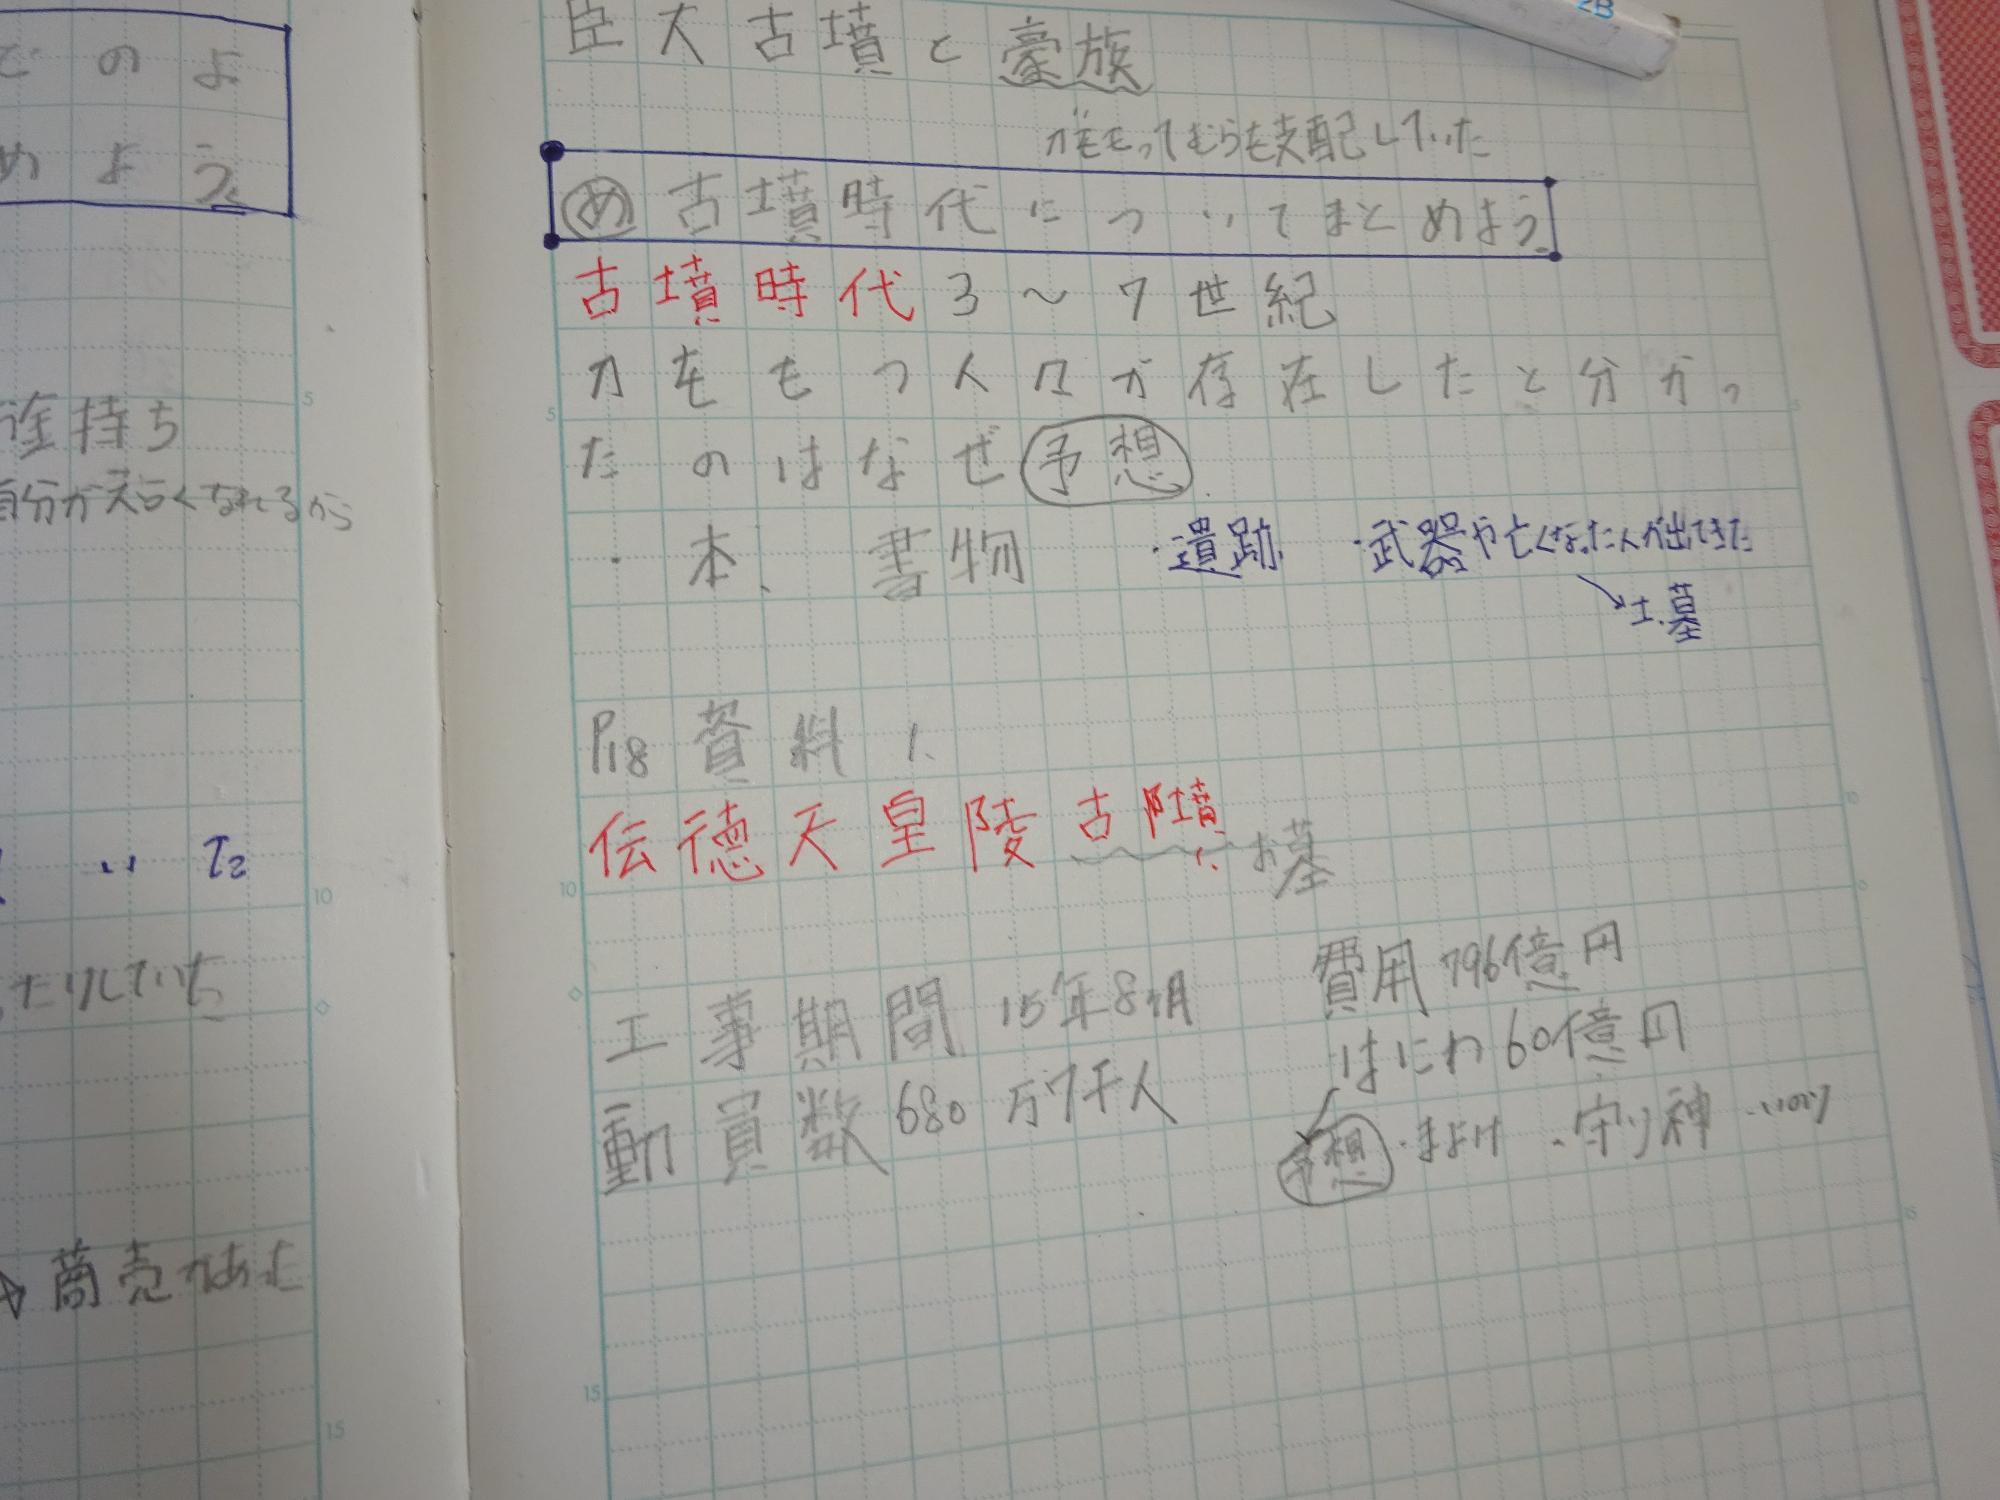 のよ
めよう
金持ち
自分がえらくなれるから
いた
たりしていた
商売があった
2B
臣大古墳と豪族
力をもってむらを支配していた
め 古墳時代についてまとめよう
古墳時代 3〜7世紀
力をもつ人々が存在したと分かっ
たのはなぜ 予想
・本、書物 ・遺跡 ・武器や亡くなった人が出てきた
土、墓
P18 資料1
伝徳天皇陵古墳 お墓
工事期間 15年8ヶ月
動員数 680万7千人
費用 796億円
はにわ 60億円
予想 ・まよけ ・守り神 ・いのり
5
10
15
5
10
15